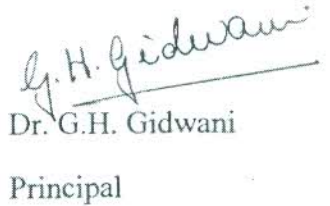 G.H. Gidwani
Dr. G.H. Gidwani
Principal